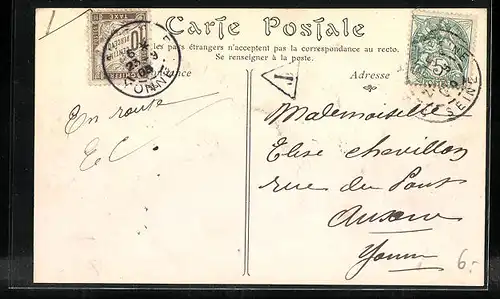 Carte Postale
les pays étrangers n'acceptent pas la correspondance au recto.
Se renseigner à la poste.
Adresse
T
En route
EC.
Mademoiselle
Elise Chevillon
rue du Pont
Auxerre
Yonne
YONNE
SEINE
10
5
6-